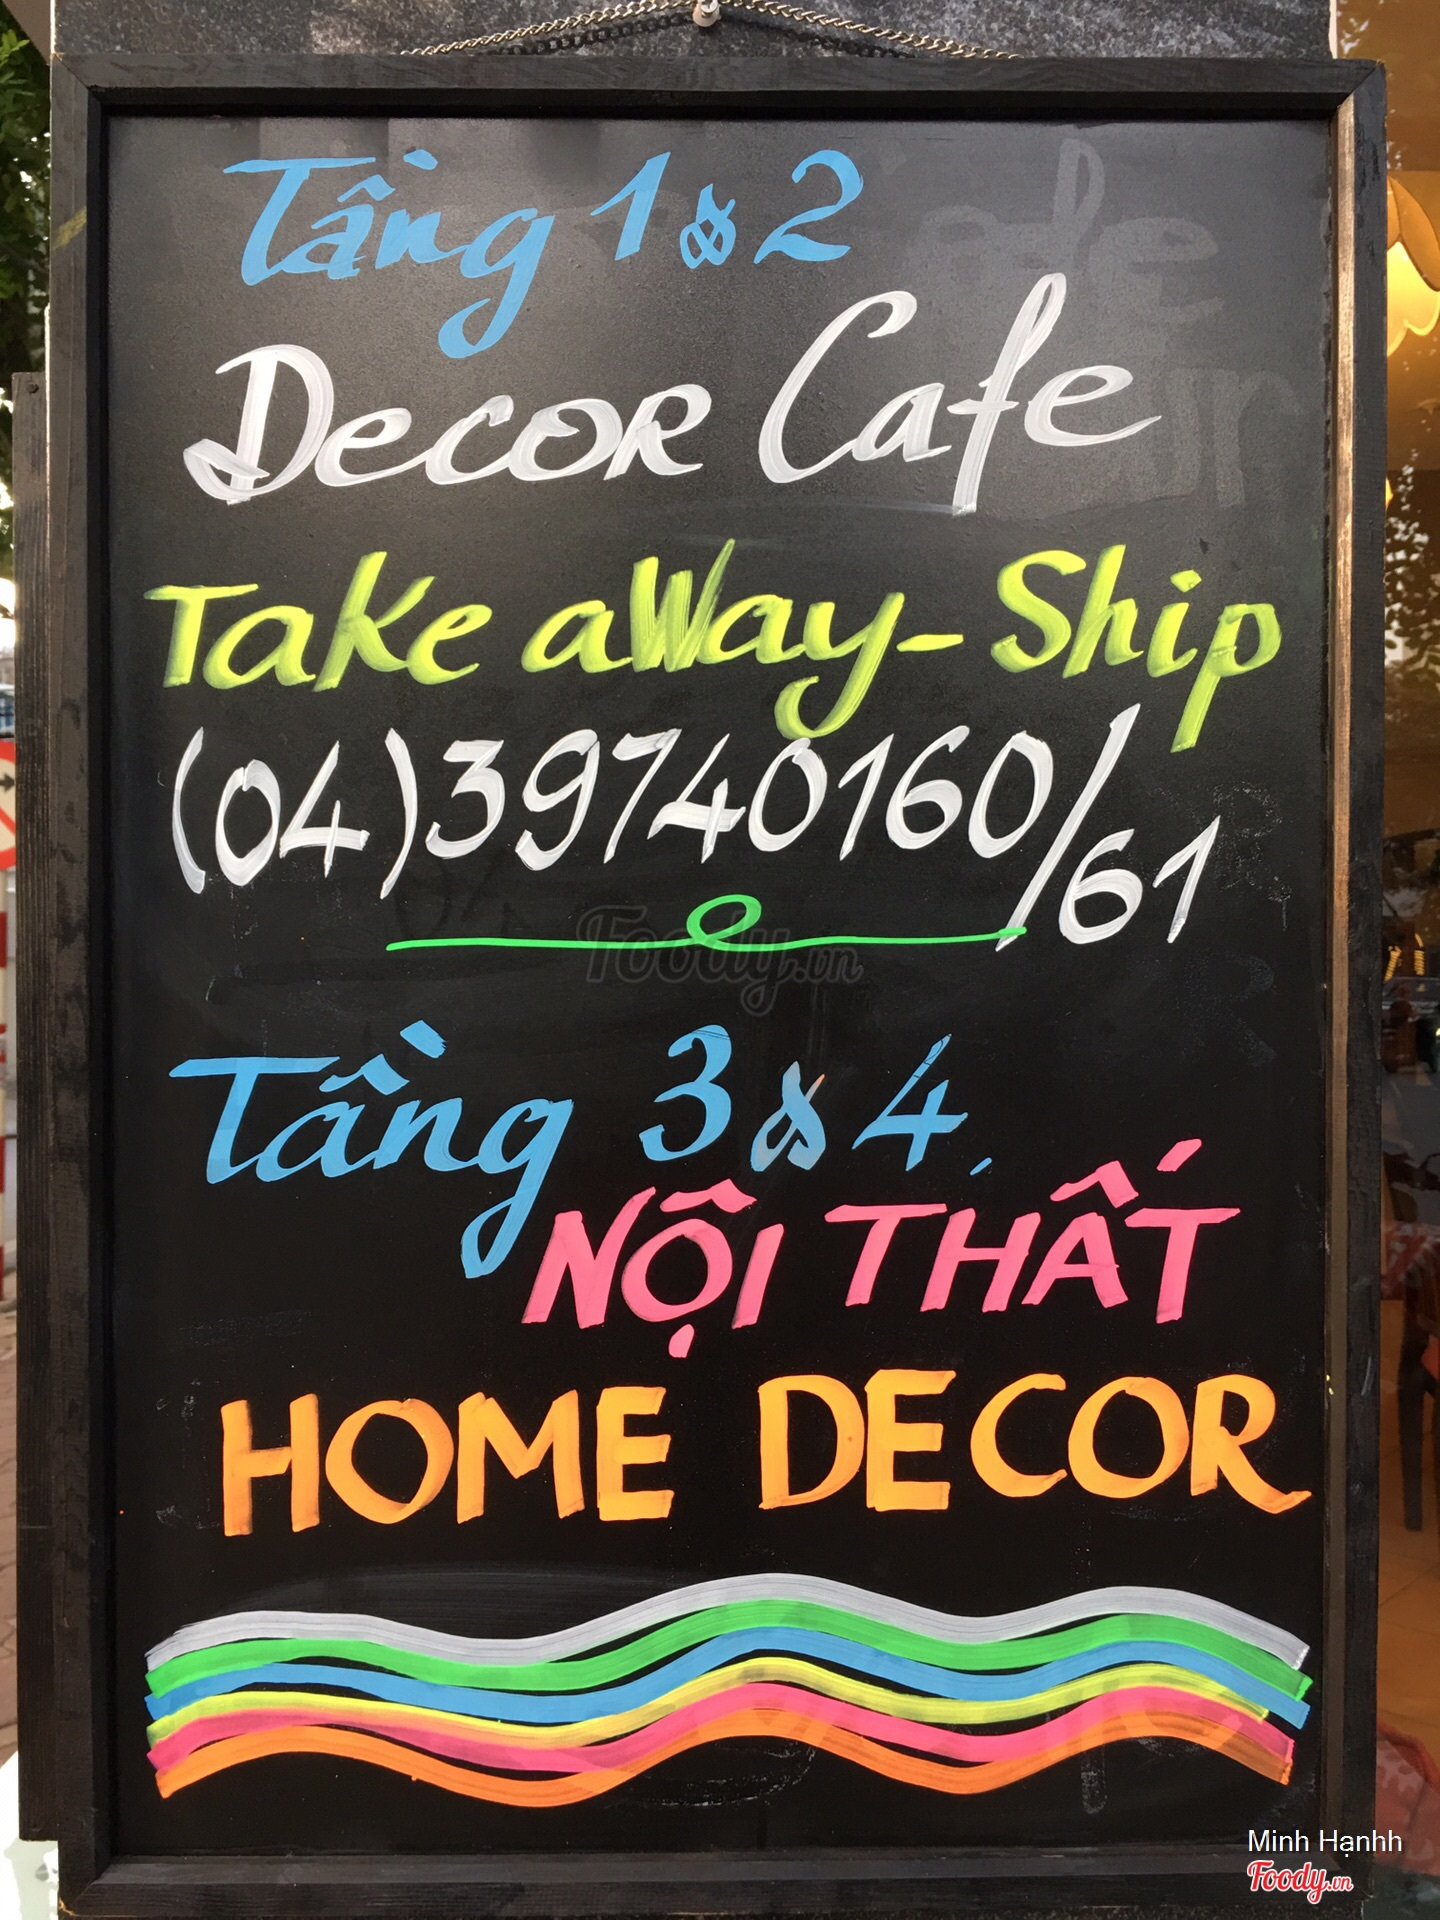 Tầng 1 & 2
Decor Cafe
Take away - Ship
(04)39740160/61
Foody.vn
Tầng 3 & 4
NỘI THẤT
HOME DECOR
Minh Hạnhh
Foody.vn